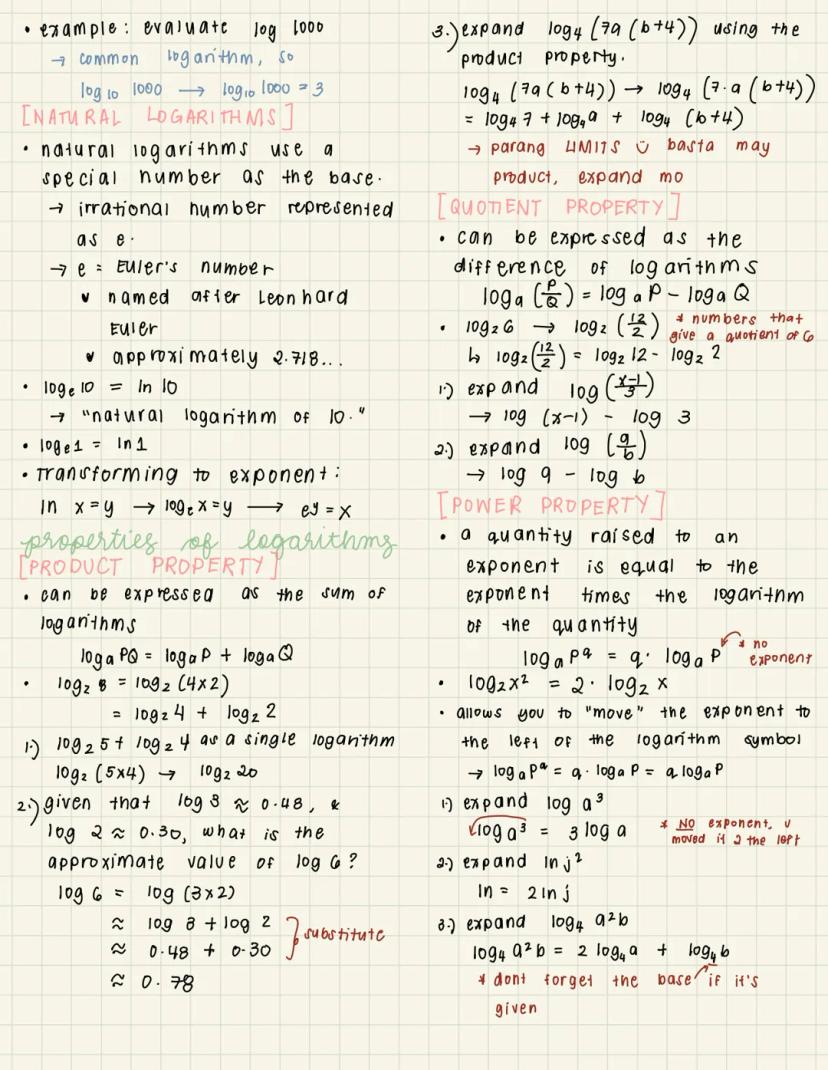 • example: evaluate log 1000
→ common logarithm, so
log₁₀ 1000 → log₁₀ 1000 = 3
[NATURAL LOGARITHMS]
• natural logarithms use a
special number as the base.
→ irrational number represented
as e.
→ e = EULER'S number
v named after Leonhard
EULER
v approximately 2.718...
• logₑ10 = ln 10
→ "natural logarithm of 10."
• logₑ1 = ln1
• Transforming to exponent:
ln x=y → logₑx=y → eʸ=x
properties of logarithms
[PRODUCT PROPERTY]
• can be expressed as the sum of
logarithms
logₐ PQ = logₐP + logₐQ
• log₂ 8 = log₂ (4x2)
= log₂ 4 + log₂ 2
1.) log₂ 5 + log₂ 4 as a single logarithm
log₂ (5x4) → log₂ 20
2.) given that log 3 ≈ 0.48, &
log 2 ≈ 0.30, what is the
approximate value of log 6?
log 6 = log (3x2)
≈ log 3 + log 2
≈ 0.48 + 0.30
} substitute
≈ 0.78
3.) expand log₄ (7a (b+4)) using the
product property.
log₄ (7a (b+4)) → log₄ (7·a (b+4))
= log₄ 7 + log₄a + log₄ (b+4)
→ parang LIMITS basta may
product, expand mo
[QUOTIENT PROPERTY]
• can be expressed as the
difference of logarithms
logₐ (P/Q) = logₐ P - logₐ Q
• log₂ 6 → log₂ (12/2) * numbers that
give a quotient of 6
↳ log₂ (12/2) = log₂ 12 - log₂ 2
1.) expand log (x-1/3)
→ log (x-1) - log 3
2.) expand log (9/b)
→ log 9 - log b
[POWER PROPERTY]
• a quantity raised to an
exponent is equal to the
exponent times the logarithm
of the quantity
logₐ P^q = q · logₐ P * no
exponent
• log₂x² = 2 · log₂ x
• allows you to "move" the exponent to
the left of the logarithm symbol
→ logₐ P^q = q · logₐ P = q logₐ P
1.) expand log a³
log a³ = 3 log a * NO exponent, u
moved it 2 the left
2.) expand ln j²
ln = 2 ln j
3.) expand log₄ a²b
log₄ a²b = 2 log₄a + log₄b
* dont forget the base if it's
given